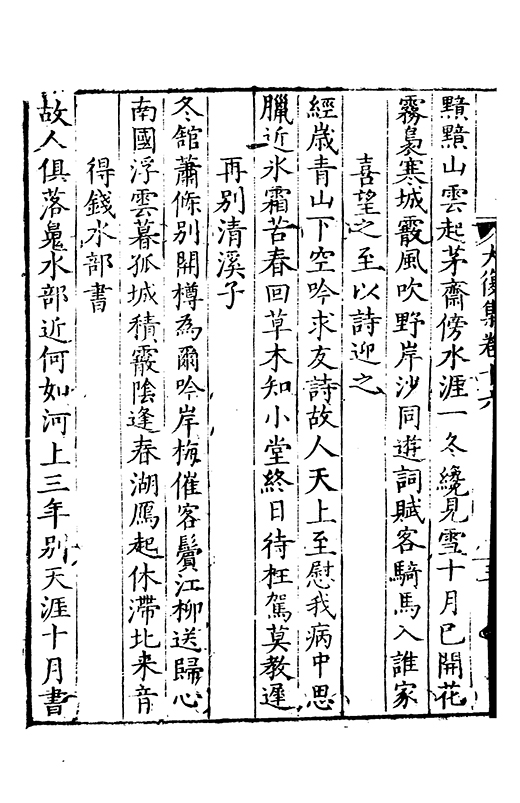 大復集卷十六
黯黯山雲起茅齋傍水涯一冬纔見雪十月已開花
霧裊寒城霰風吹野岸沙同遊詞賦客騎馬入誰家
喜望之至以詩迎之
經歲青山下空吟求友詩故人天上至慰我病中思
臘近氷霜苦春回草木知小堂終日待枉駕莫教遲
再别清溪子
冬舘蕭條别開樽為爾吟岸梅催客鬢江柳送歸心
南國浮雲暮孤城積霰陰逢春湖鴈起休滯北来音
得錢水部書
故人俱落嵬水部近何如河上三年别天涯十月書